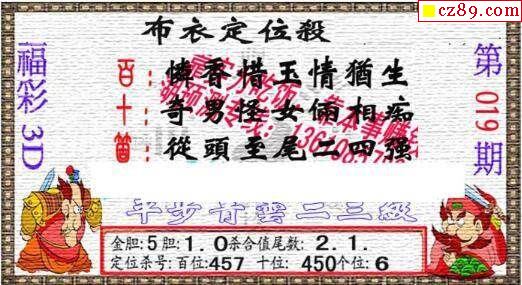 cz89.com
布衣定位殺
福彩3D
第019期
百：憐香惜玉情猶生
十：奇男怪女倆相痴
個：從頭至尾二四强
平步青雲二三級
金胆:5胆:1.0杀合值尾数:2.1.
定位杀号:百位:457 十位:450个位:6